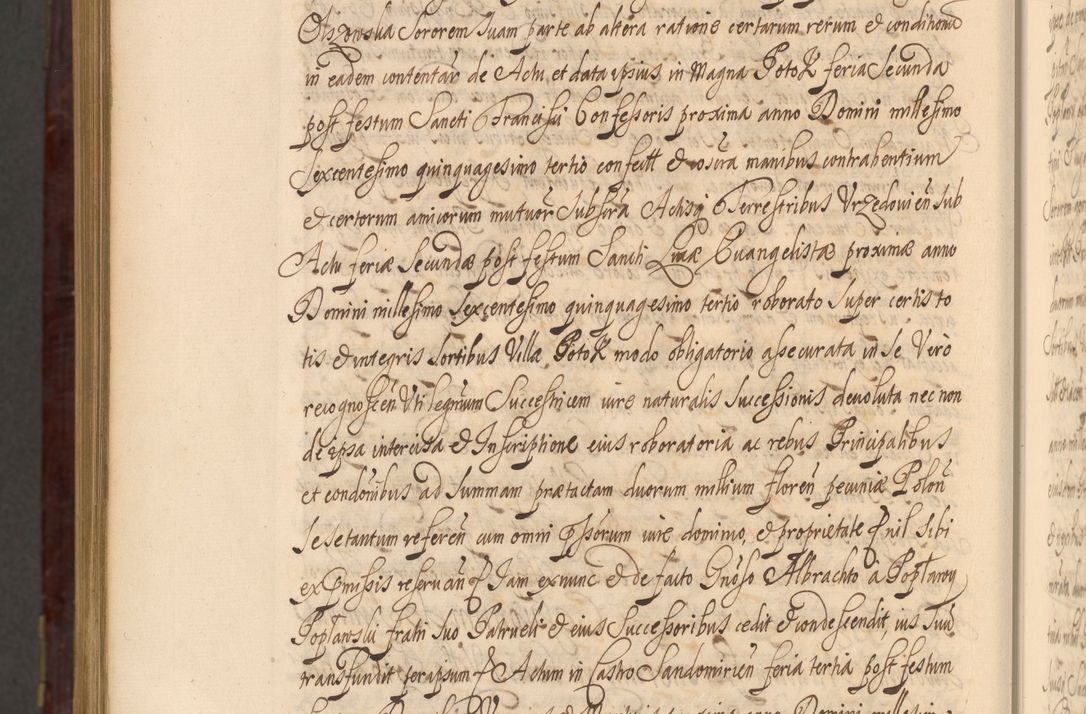 Olszowska Sororem Suam parte ab altera ratione certarum rerum et conditionū
in eadem contentar de Actu et data ipsius in Magna Potok feria Secunda
post festum Sancti Francisci Confessoris proxima anno Domini millesimo
Sexcentesimo quinquagesimo tertio confectt et manibus contrahentium
et certorum amicorum mutuor Subscra Actisq Terrestribus Urzedovien̄ sub
Actu feriæ Secundæ post festum Sancti Lucæ Evangelistæ proximæ anno
Domini millesimo Sexcentesimo quinquagesimo tertio roborato super certis to
tis et integris sortibus Villæ Potok modo obligatorio assecurata in se Vero
recognoscen̄ Uti legitimum Successricem iure naturalis Successionis devoluta nec non
de ipsa intercisa et Inscriptione eius roboratoria ac rebus Principalibus
et condōnibus ad Summam prætactam duorum millium floren̄ pecuniæ Polon̄
Se se tantum referen̄ cum omni pssorum iure dominio, et proprietate nil Sibi
ex præmissis reservan̄ Jam ex nunc et de facto Gnōso Albrachto a Popławy
Popławski fratri Suo Patrueli et eius Successoribus cedit et condescendit, ius Suū
transfundit per ipsum Actum in Castro Sandomirien̄ feria tertia post festum
anno Domini